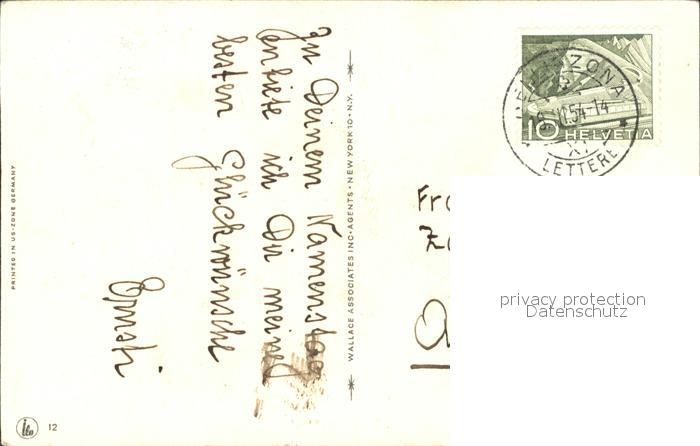 Zu Deinem Namenstag
entbiete ich Dir meine
besten Glückwünsche
WALLACE ASSOCIATES INC·AGENTS·NEW YORK 10·N.Y.
PRINTED IN US-ZONE GERMANY
12
BELLINZONA
54-14
LETTERE
10 HELVETIA
Fr
privacy protection
Datenschutz